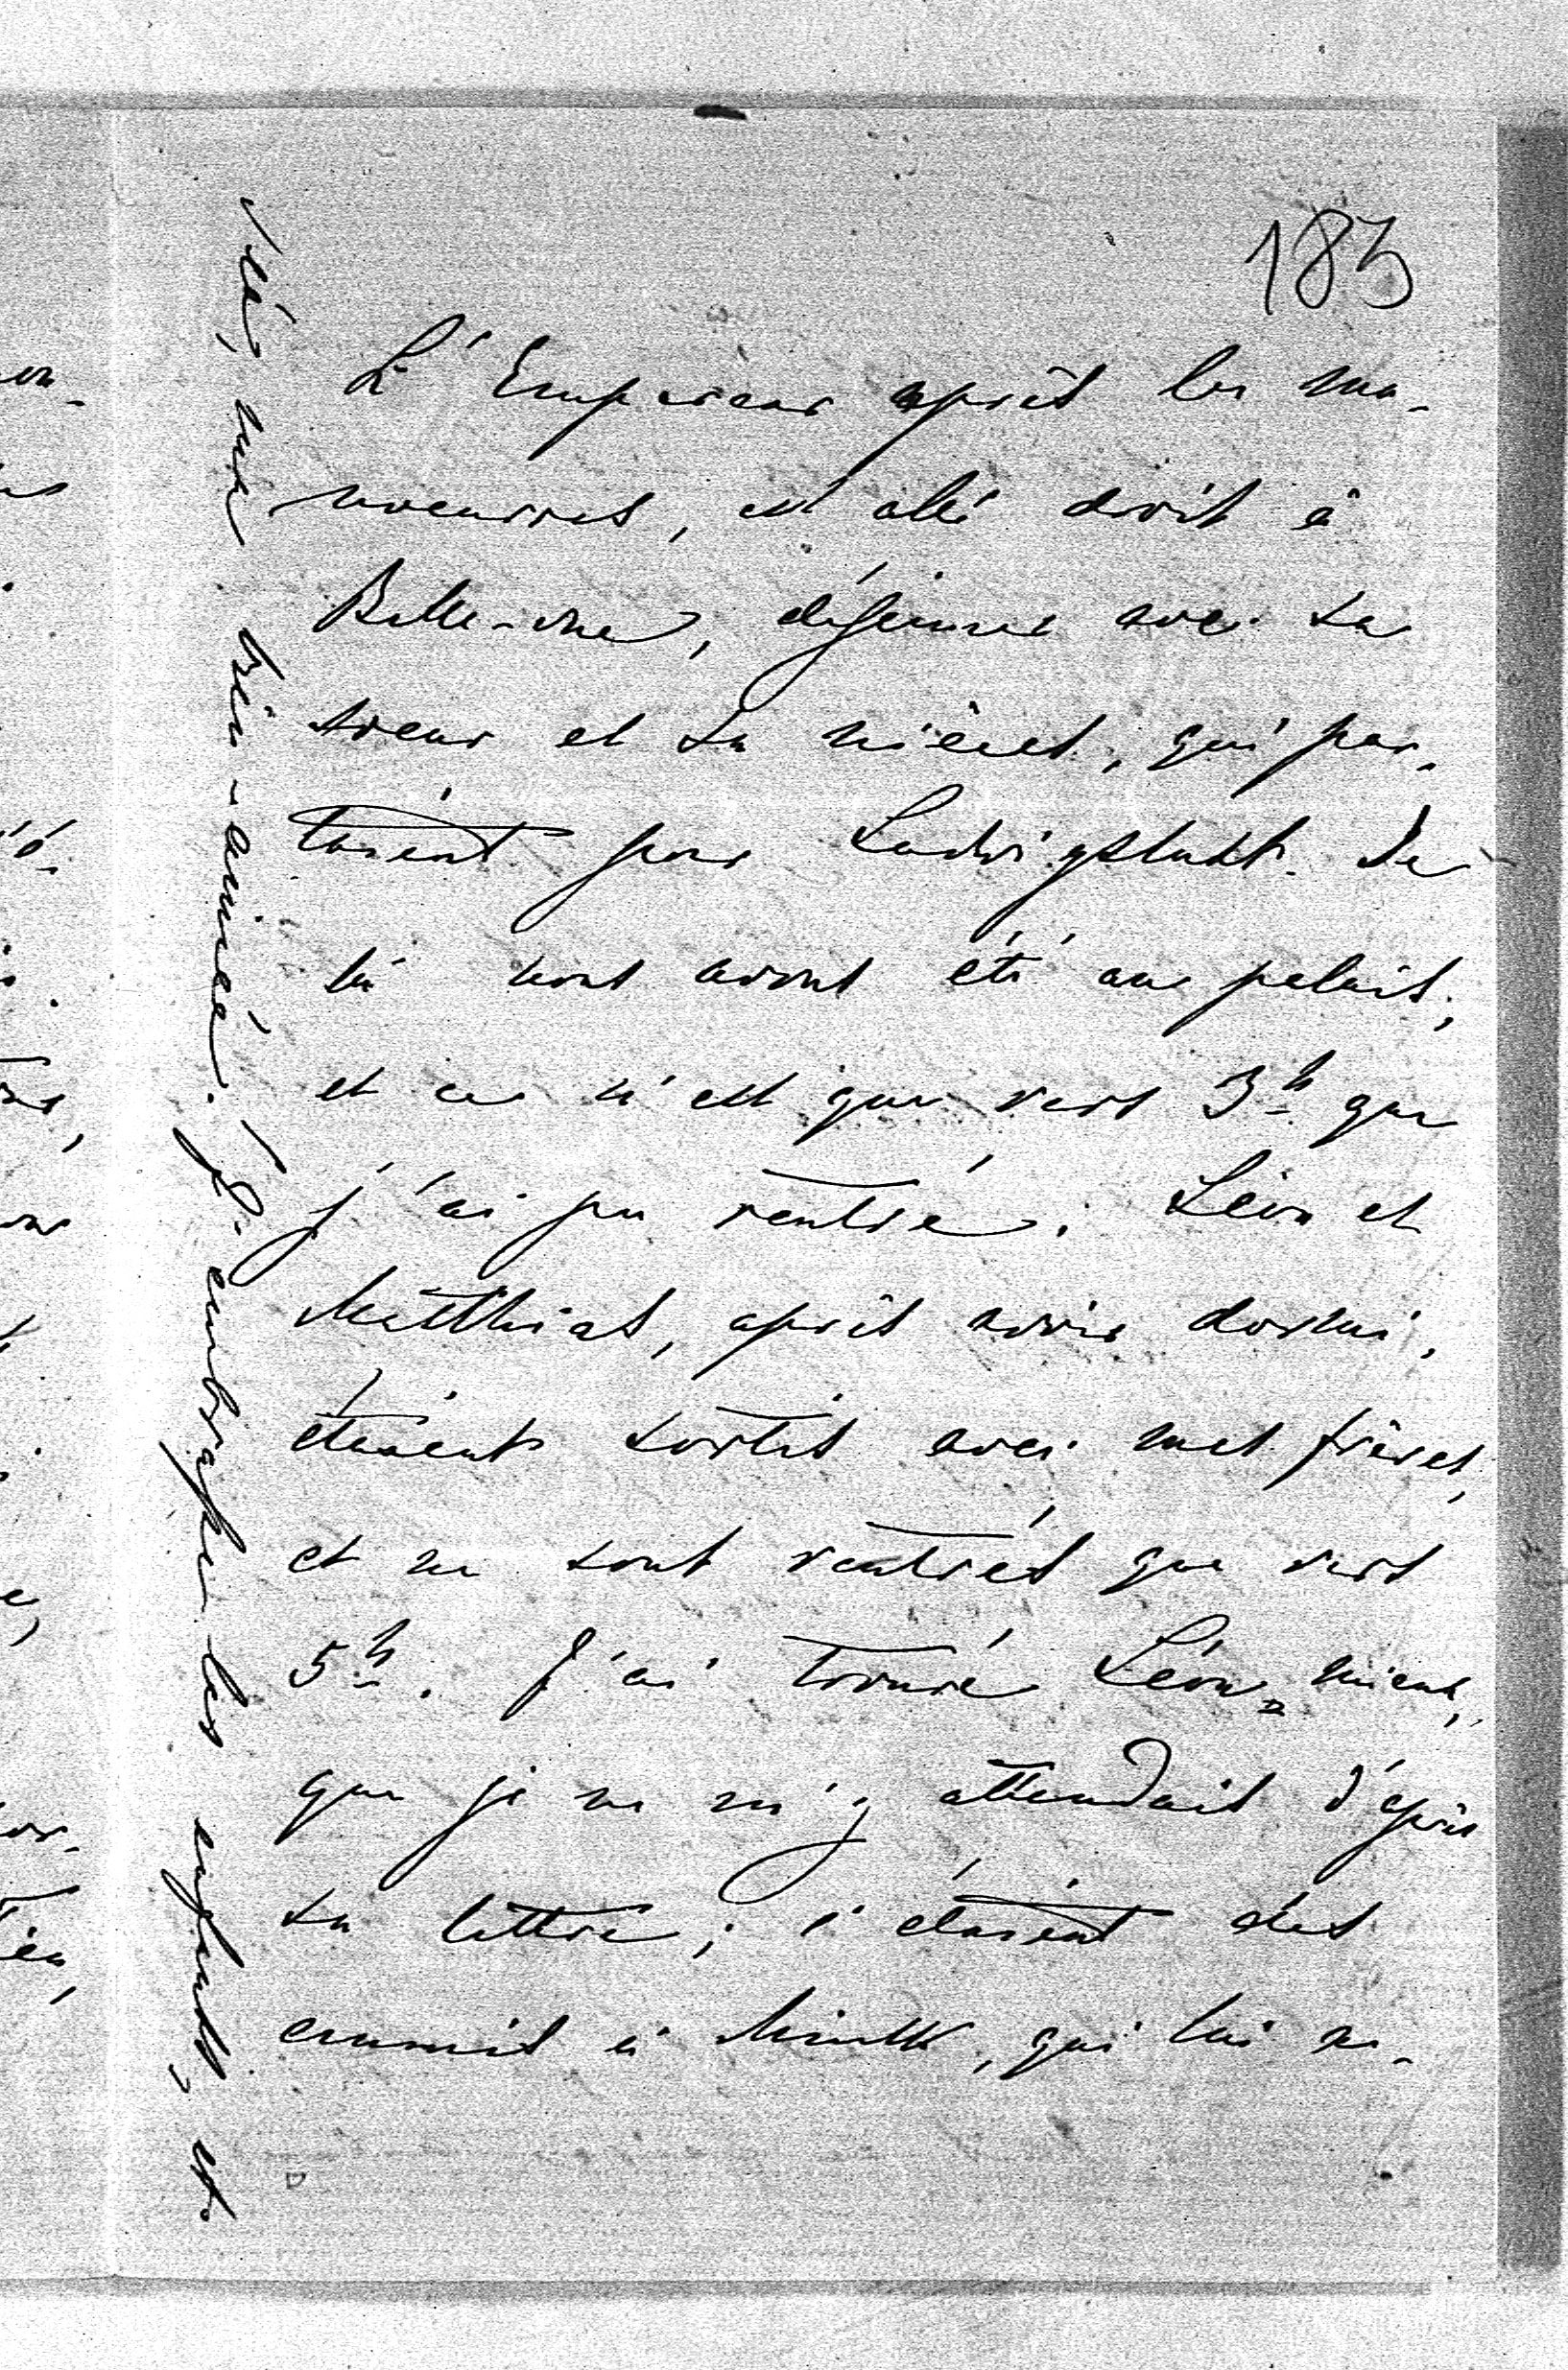 183
L'Empereur après les ma-
noeuvres, est allé droit à
Belle-vue, déjeuner avec sa
soeur et sa nièces, qui par-
taient pour Ludwigslust. De
là nous avons été au palais,
et ce n'est que vers 3h que
j'ai pu rentré. Léon et
Matthias, après avoir dormi,
étaient sortis avec mes frères,
et ne sont rentrés que vers
5h. J'ai trouvé Léon mieux,
que je ne m'y attendais d'après
ta lettre; c'étaient des
ennuis à Minsk, qui lui a-
ma très-aimée. J'embrasse les enfants, et